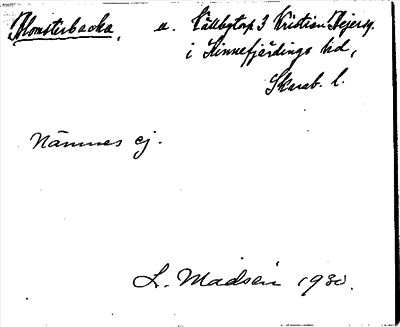 Blomsterbacka, u. Källbytorp 3 Kristian Hejersg.
i Kinnefjärdings hd,
Skarab. l.
Nämnes ej.
L. Madsén 1930.